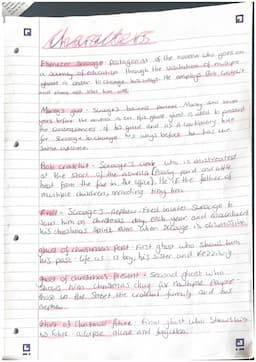 Characters
Ebenezer Scrooge - protagonist of the novella who goes on
a journey of education through the visitations of multiple
ghosts in order to change his ways. He employs Bob Cratchit
and does not treat him well.
Marley's ghost - Scrooge's business partner Marley died seven
years before the novella is set. His ghost is used to present
the consequences of his greed and is a cautionary tale
for Scrooge to change his ways before he has the
same outcome.
Bob Cratchit - Scrooge's clerk who is mistreated
at the start of the novella (poorly paid and little
heat from the fire in the office). He is the father of
multiple children, including Tiny Tim.
Fred - Scrooge's nephew. Fred invites Scrooge to
visit him on Christmas day each year and
his Christmas spirit even when Scrooge is
Ghost of christmas past - First ghost who shows him
his past life as a boy, his sister and Fezziwig.
Ghost of christmas present - Second ghost who
shows him Christmas day for multiple people -
those in the street, the Cratchit family and his
nephew.
Ghost of christmas future - Final ghost who shows him
his future alone and forgotten.